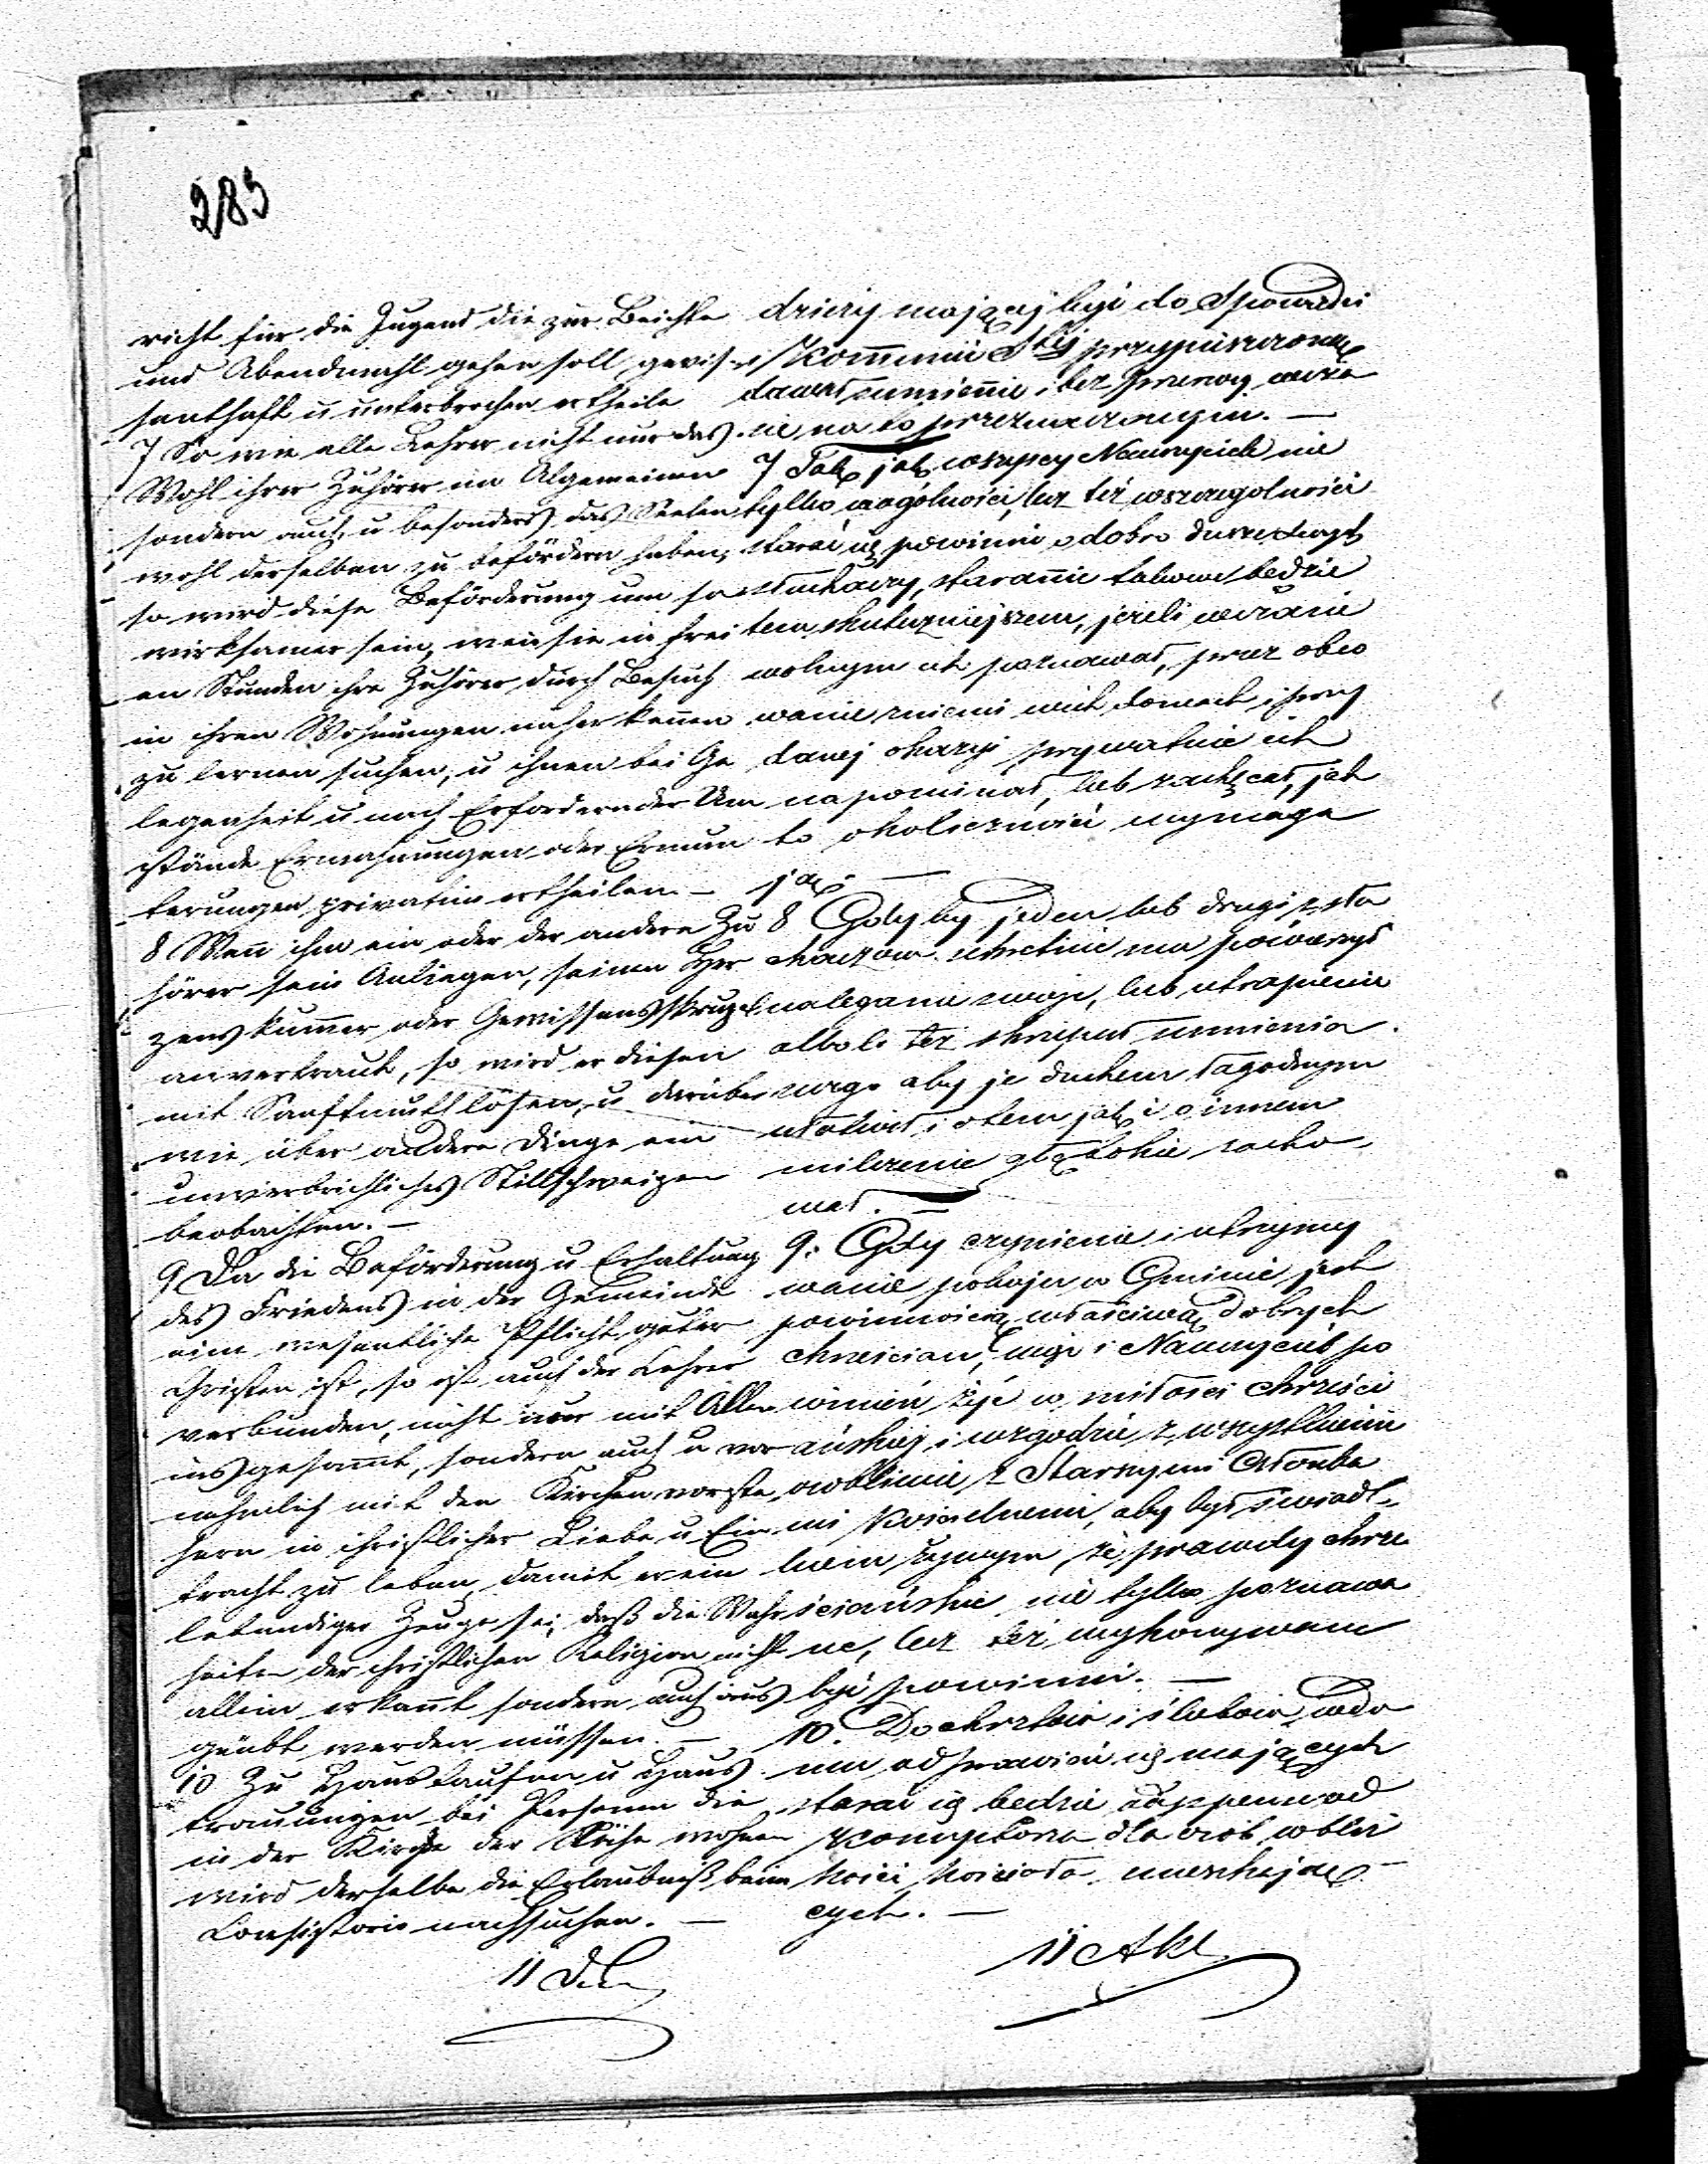 283
richt für die Jugend die zur Beichte
und Abendmahl gehen soll, gewis-
senhaft u unterbrochen ertheile
7 So wie alle Lehrer nicht nur das
Wohl ihrer Zuhörer im Algemeinen
sondern auch u besonders das Seelen
wohl derselben zu befördern haben,
so wird diese Beförderung um so
wirksamer sein, wen sie in frei
en Stunden ihre Zuhörer durch Besuch
in ihren Wohnungen näher kennen
zu lernen suchen, u ihnen bei Ge
legenheit u nach Erfordern der Um
stände Ermahnungen oder Ermun
terungen privatim ertheilen -
8 Wen ihm ein oder der andere Zu
hörer sein Anliegen, seinen Her
zens kumer oder Gewissensskrupel
anvertraut, so wird er diesen
mit Sanftmuth lösen, u darüber
wie über andere Dinge ein
unverbrichliches Stillschweigen
beobachten. -
9 Da die Beförderung u Erhaltung
des Friedens in der Gemeinde
eine wesentliche Pflicht guter
Christen ist, so ist auch der Lehrer
verbunden, nicht nur mit Allen
ins gesamt, sondern auch u vor
nehmlich mit den Kirchenvorste
hern in christlicher Liebe u Ein
tracht zu leben, damit er ein
lebendiger Zeuge sei, daß die Wahr
heiten der christlichen Religion nicht
allein erkant sondern auch aus
geübt werden müssen. -
10 Zu Haus taufen u Haus
trauungen bei Personen die
in der Kirche der Nähe wohnen
wird derselbe die Erlaubniß beim
Consistorio nachsuchen. -
11 D
dzieży mającej być do Spowiedzi
i Kommunii Stej przypuszczoną
dawał sumiennie i bez przerwy
na to przeznaczonym. -
7 Tak jak wszyscy Nauczyciele nie
tylko w ogólności, lecz też w szczególności
starać się powinni o dobro dusz swych
słuchaczy, staranie takowe będzie
tem skuteczniejszem, jeżeli w czasie
wolnym ich poznawał, przez obco
wanie z niemi w ich domach i przy
danej okazyi prywatnie ich
napominał, lub zachęcał, jak
to okoliczności wymaga
ją. -
8 Gdyby jeden lub drugi z słu
chaczów sekretnie mu powierzył
nalegania swoje, lub utrapienie
albo li też skrupuł sumienia
swego aby je duchem łagodnym
ułatwił, i o tem jak i o innem
milczenie głębokie zacho
wał. -
9. Gdy czynienie i utrzymy
wanie pokoju w Gminie jest
powinnością właściwą dobrych
chrześcian, więc i Nauczyciel po
winien żyć w miłości chrześci
ańskiej i w zgodzie z wszystkiemi
osobliwie z Starszymi Członka
mi Kościelnemi, aby był świad-
kiem żywym, że prawdy chrze
ściańskie nie tylko poznawa
ne, lecz też wykonywane
być powinni. -
10. Do chrztów i ślubów w do
mu odprawić się mających
starać się będzie o
Konsystorza dla osób w blis
kości kościoła mieszkają
cych. -
11 Akt